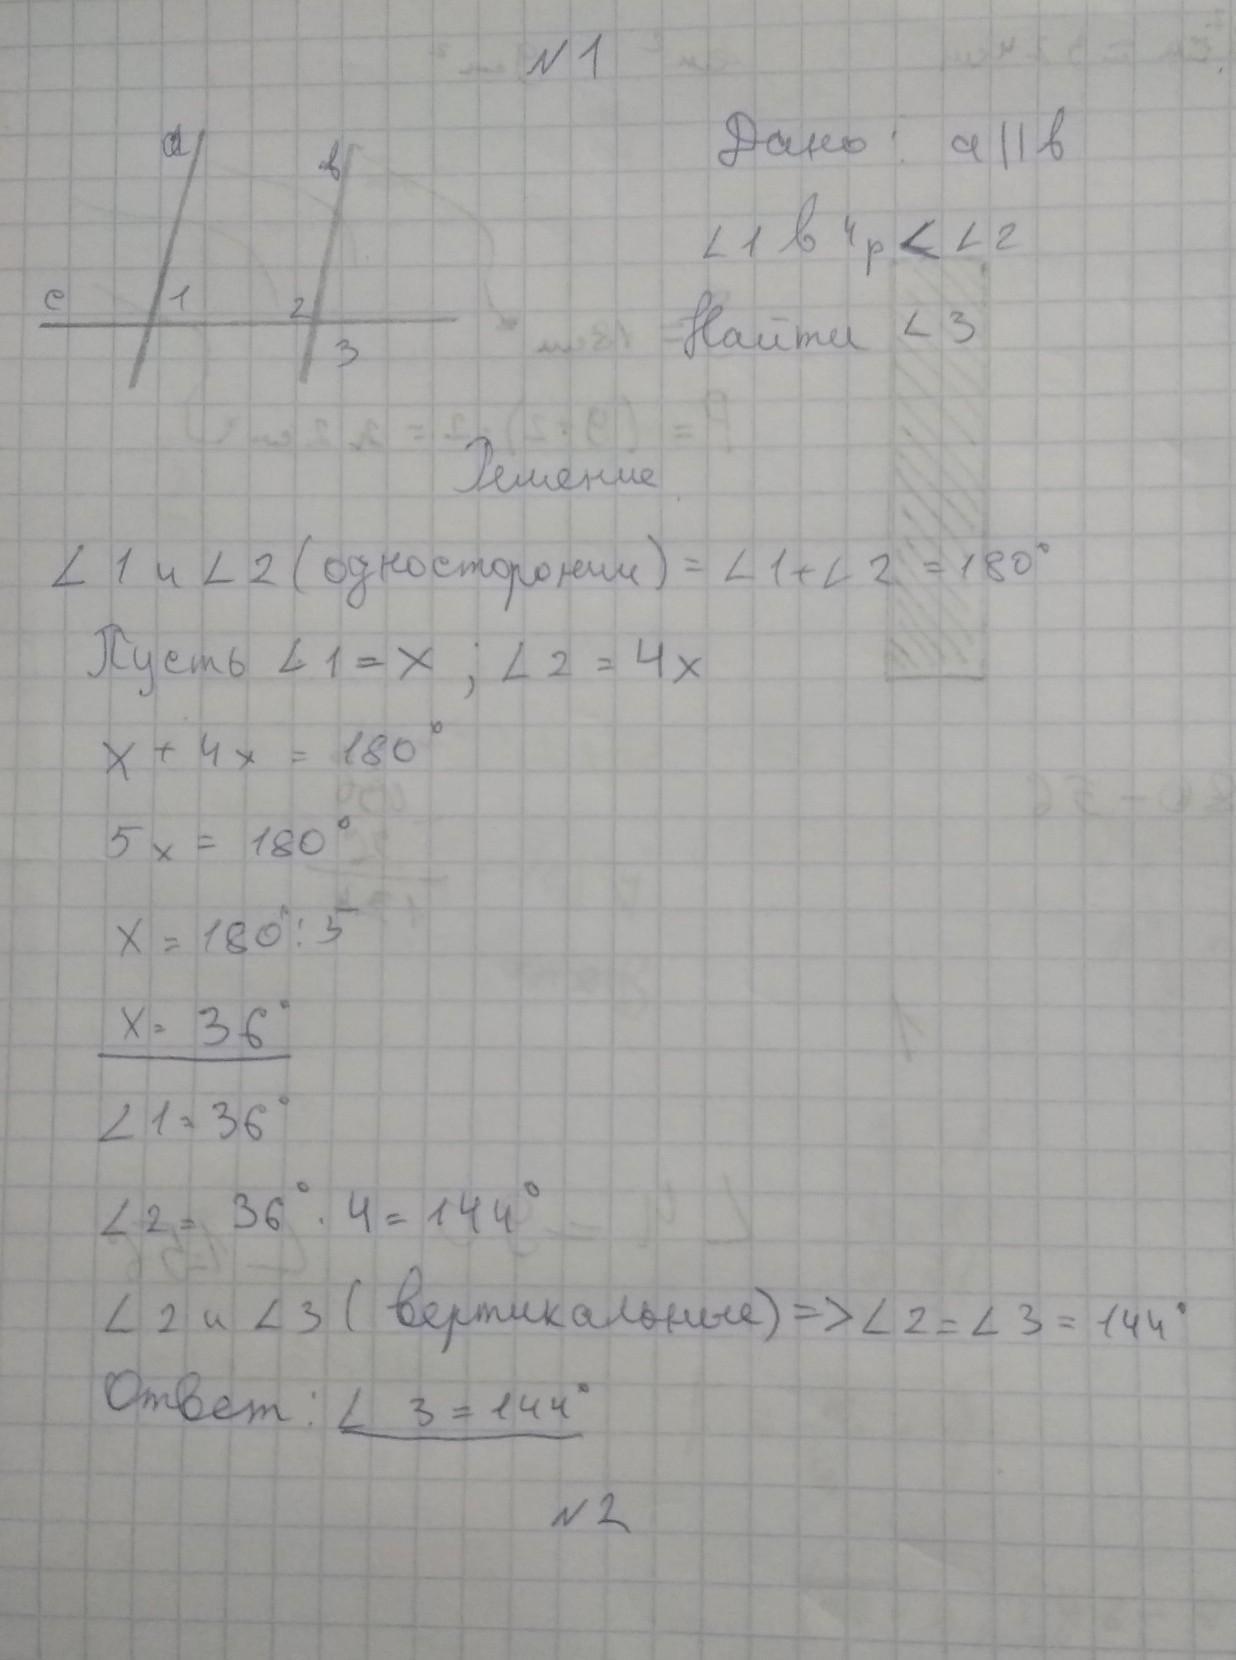 №1
a
в
с
1
2
3
Дано: a||в
∠1 в 4р < ∠2
Найти ∠3
Решение
∠1 и ∠2 (односторонии) = ∠1+∠2 = 180°
Пусть ∠1 = x ; ∠2 = 4x
x + 4x = 180°
5x = 180°
x = 180°:5
x = 36°
∠1 = 36°
∠2 = 36° · 4 = 144°
∠2 и ∠3 (вертикальные) => ∠2 = ∠3 = 144°
Ответ: ∠3 = 144°
№2